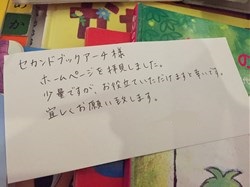 セカンドブックアーチ様
ホームページを拝見しました。
少量ですが、お役立ていただけますと幸いです。
宜しくお願い致します。
の